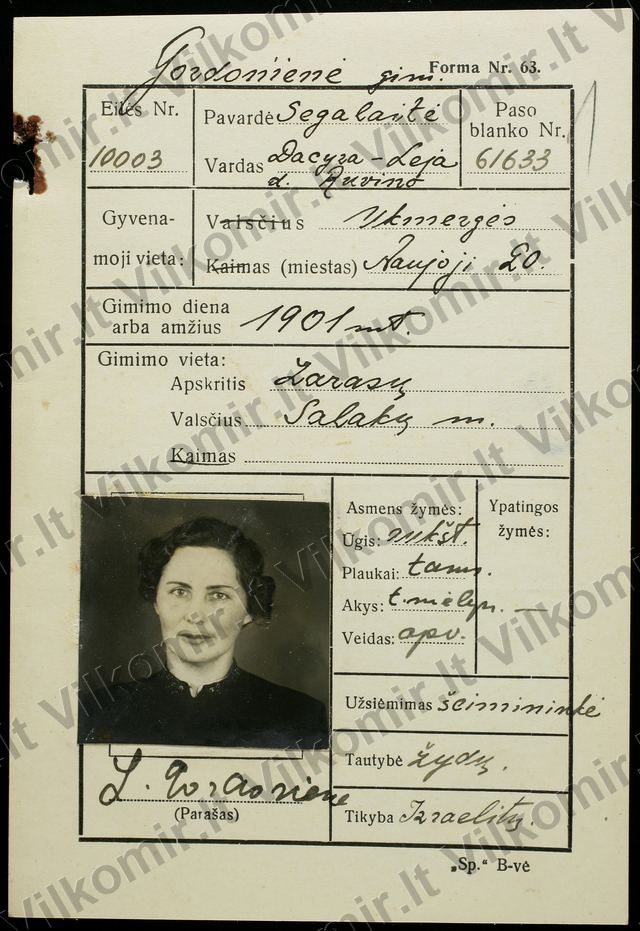 Gordonienė gim.
Forma Nr. 63.
Eilės Nr.
10003
Pavardė Segalaitė
Vardas Dacyra-Leja
d. Ruvino
Paso
blanko Nr.
61633
Gyvena-
moji vieta:
Valsčius Ukmergės
Kaimas (miestas) Naujoji 20.
Gimimo diena
arba amžius 1901 mt.
Gimimo vieta:
Apskritis Zarasų
Valsčius Salakų m.
Kaimas
Asmens žymės:
Ūgis: aukšt.
Plaukai: tams.
Akys: t. mėlyn.
Veidas: apv.
Ypatingos
žymės:
—
Užsiėmimas šeimininkė
Tautybė žydų.
Tikyba Izraelitų.
L. Gordonienė
(Parašas)
„Sp.“ B-vė
Vilkomir.lt